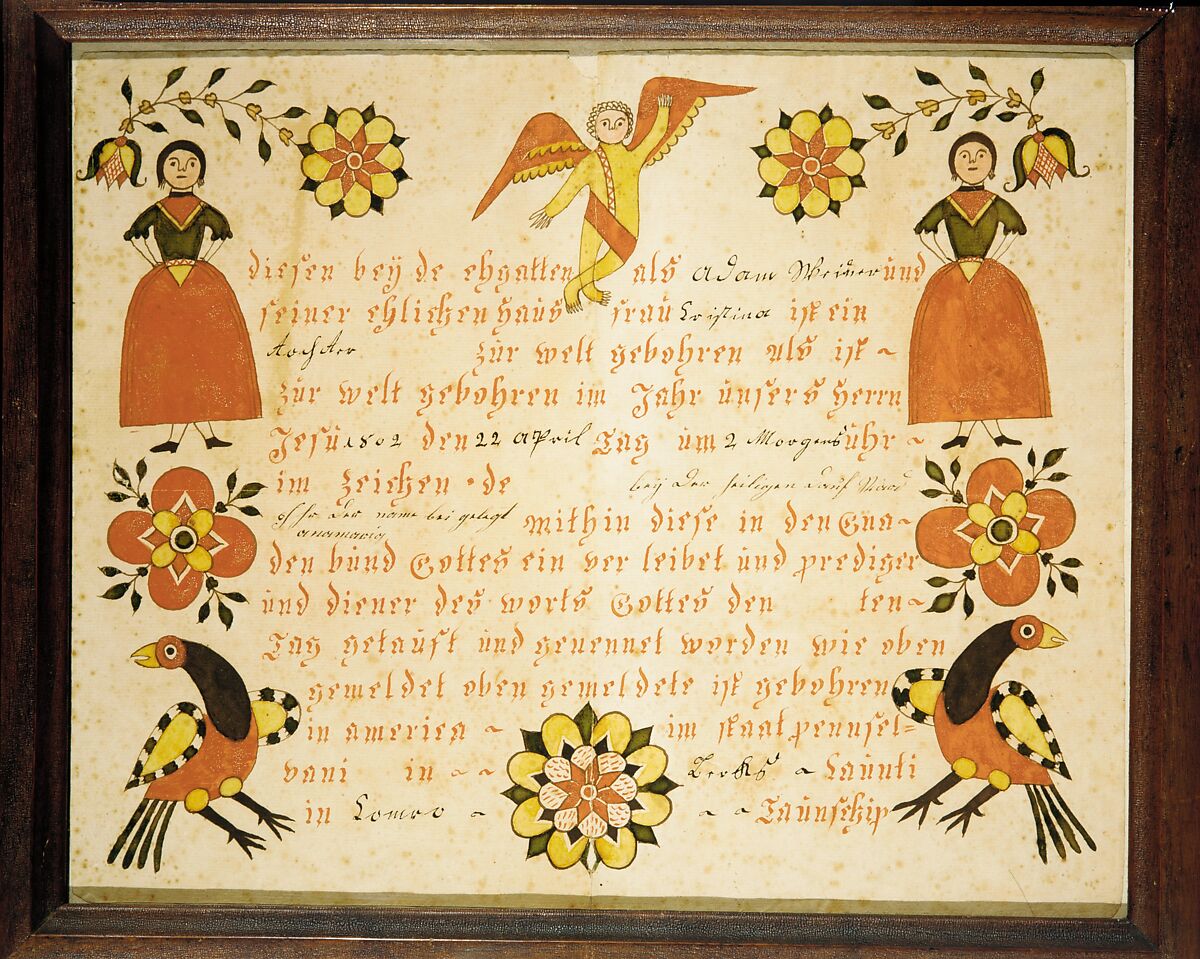 diesen beÿ de ehgatten als Adam Weiver und
seiner ehlichen haus frau Cristina ist ein
tochter zur welt gebohren als ist ~
zur welt gebohren im Jahr unsers Herrn
Jesu 1802 den 22 April Tag um 2 Morgens uhr ~
im Zeichen de bey der heiligen dauf
Ihr der name bei gelegt
anamaria mithin diese in den Gna~
den bund Gottes ein ver leibet und prediger
und diener des worts Gottes den ten~
Tag getauft und genennet worden wie oben
gemeldet oben gemeldete ist gebohren
in america ~ im staat pennsel=
vani in ~ ~ Berks ~ Caunti
in ~ ~ ~ Taunschip